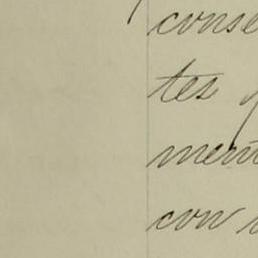 conse
tes
ment
con